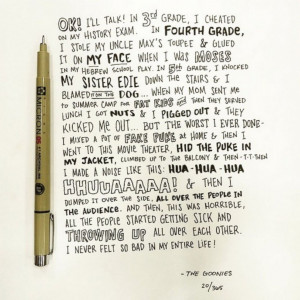 OK! I'LL TALK! IN 3rd GRADE, I CHEATED
ON MY HISTORY EXAM. IN FOURTH GRADE,
I STOLE MY UNCLE MAX'S TOUPEE & GLUED
IT ON MY FACE WHEN I WAS MOSES
IN MY HEBREW SCHOOL PLAY. IN 5th GRADE, I KNOCKED
MY SISTER EDIE DOWN THE STAIRS & I
BLAMED IT ON THE DOG... WHEN MY MOM SENT ME
TO SUMMER CAMP FOR FAT KIDS & THEN THEY SERVED
LUNCH I GOT NUTS & I PIGGED OUT & THEY
KICKED ME OUT... BUT THE WORST I EVER DONE-
I MIXED A POT OF FAKE PUKE AT HOME & THEN I
WENT TO THIS MOVIE THEATER, HID THE PUKE IN
MY JACKET, CLIMBED UP TO THE BALCONY & THEN-T-T-THEN
I MADE A NOISE LIKE THIS: HUA-HUA-HUA
HHUUAAAAA! & THEN I
DUMPED IT OVER THE SIDE, ALL OVER THE PEOPLE IN
THE AUDIENCE. AND THEN, THIS WAS HORRIBLE,
ALL THE PEOPLE STARTED GETTING SICK AND
THROWING UP ALL OVER EACH OTHER.
I NEVER FELT SO BAD IN MY ENTIRE LIFE!
- THE GOONIES
20/365
MICRON